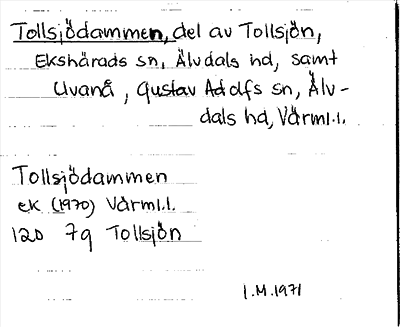 Tollsjödammen, del av Tollsjön,
Ekshärads sn, Älvdals hd, samt
Uvanå, Gustav Adolfs sn, Älv-
dals hd, Värml.l.
Tollsjödammen
ek (1970) Värml.l.
12D 7g Tollsjön
I.M.1971